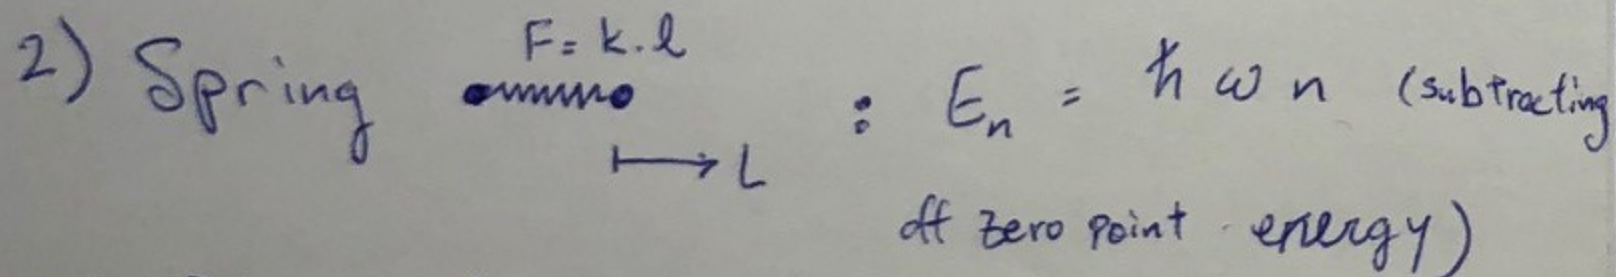 F= k.l
2) Spring : En = ħ ω n (subtracting
L
off zero point energy)